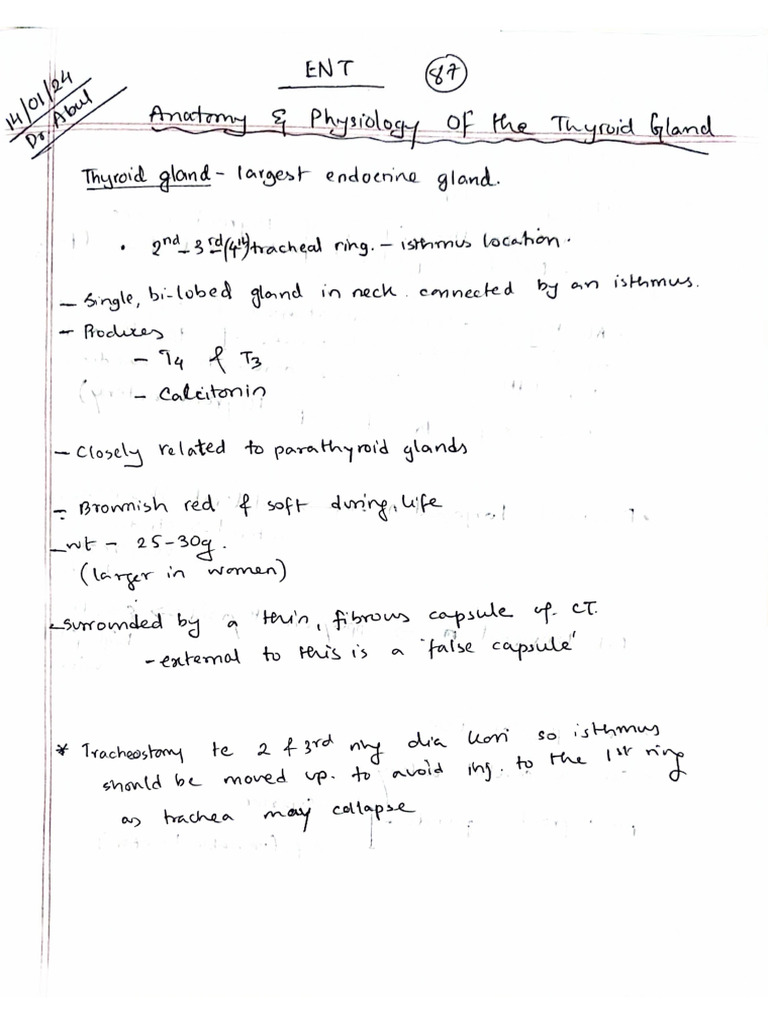 ENT
87
14/01/24
Dr. Abul
Anatomy & Physiology Of the Thyroid Gland
Thyroid gland - largest endocrine gland.
• 2nd - 3rd (4th) tracheal ring. - isthmus location.
- Single, bi-lobed gland in neck connected by an isthmus.
- Produces
- T4 & T3
- Calcitonin
- Closely related to parathyroid glands
- Brownish red & soft during life
- wt - 25-30g.
(larger in women)
- surrounded by a thin, fibrous capsule of CT.
- external to this is a 'false capsule'
* Tracheostomy te 2 & 3rd ring dia kori so isthmus
should be moved up. to avoid inj. to the 1st ring
as trachea may collapse